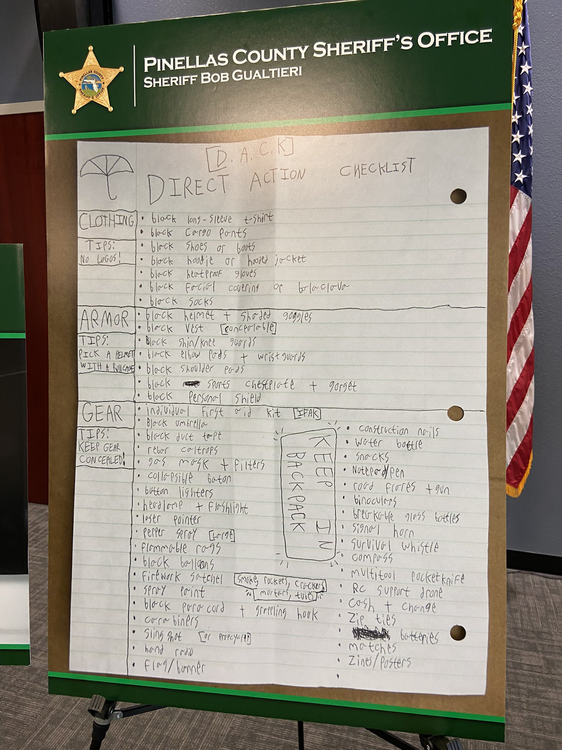 PINELLAS COUNTY SHERIFF'S OFFICE
SHERIFF BOB GUALTIERI
[D.A.C.K]
DIRECT ACTION CHECKLIST
CLOTHING
TIPS:
NO LOGOS!
• black long-sleeve t-shirt
• black cargo pants
• black shoes or boots
• black hoodie or hooded jacket
• black heatproof gloves
• black facial covering or balaclava
• black socks
ARMOR
TIPS:
PICK A HELMET
WITH A
• black helmet + shaded goggles
• black vest [concealable]
• black shin/knee guards
• black elbow pads + wristguards
• black shoulder pads
• black sports chestplate + gorget
• black personal shield
GEAR
TIPS:
KEEP GEAR
CONCEALED!
• individual first aid kit [IFAK]
• Black umbrella
• black duct tape
• rebar caltrops
• gas mask + filters
• collapsible baton
• button lighters
• headlamp + flashlight
• laser pointer
• pepper spray [large]
• flammable rags
• black balloons
• firework satchel
smoke, rockets, crackers
mortars, tubes
• spray paint
• black paracord + grappling hook
• carabiners
• slingshot
• hand radio
• flag/banner
KEEP IN
BACKPACK
• construction nails
• water bottle
• snacks
• Notepad/pen
• road flares + gun
• binoculars
• breakable glass bottles
• signal horn
• survival whistle
• compass
• multitool pocketknife
• RC support drone
• cash + change
• Zip ties
• batteries
• matches
• Zines/posters